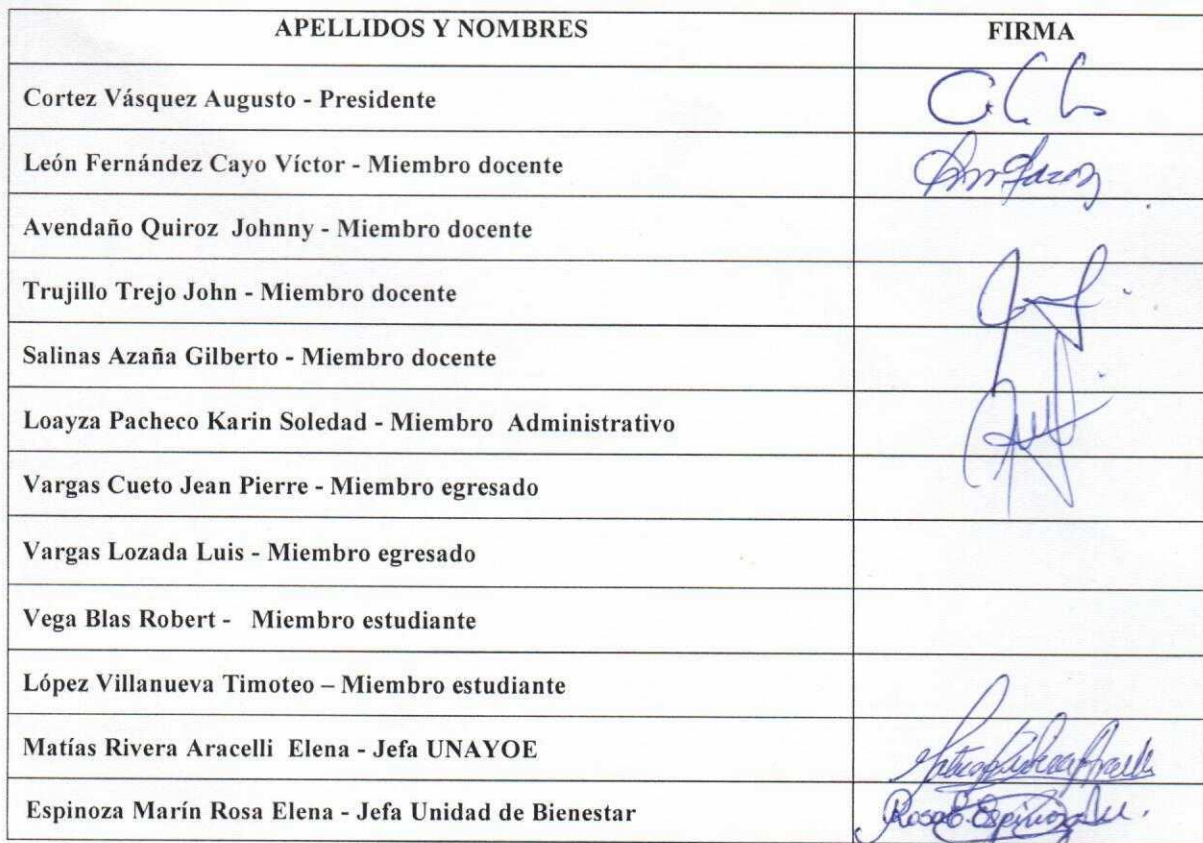 APELLIDOS Y NOMBRES FIRMA
Cortez Vásquez Augusto - Presidente
León Fernández Cayo Víctor - Miembro docente
Avendaño Quiroz Johnny - Miembro docente
Trujillo Trejo John - Miembro docente
Salinas Azaña Gilberto - Miembro docente
Loayza Pacheco Karin Soledad - Miembro Administrativo
Vargas Cueto Jean Pierre - Miembro egresado
Vargas Lozada Luis - Miembro egresado
Vega Blas Robert - Miembro estudiante
López Villanueva Timoteo – Miembro estudiante
Matías Rivera Aracelli Elena - Jefa UNAYOE
Espinoza Marín Rosa Elena - Jefa Unidad de Bienestar